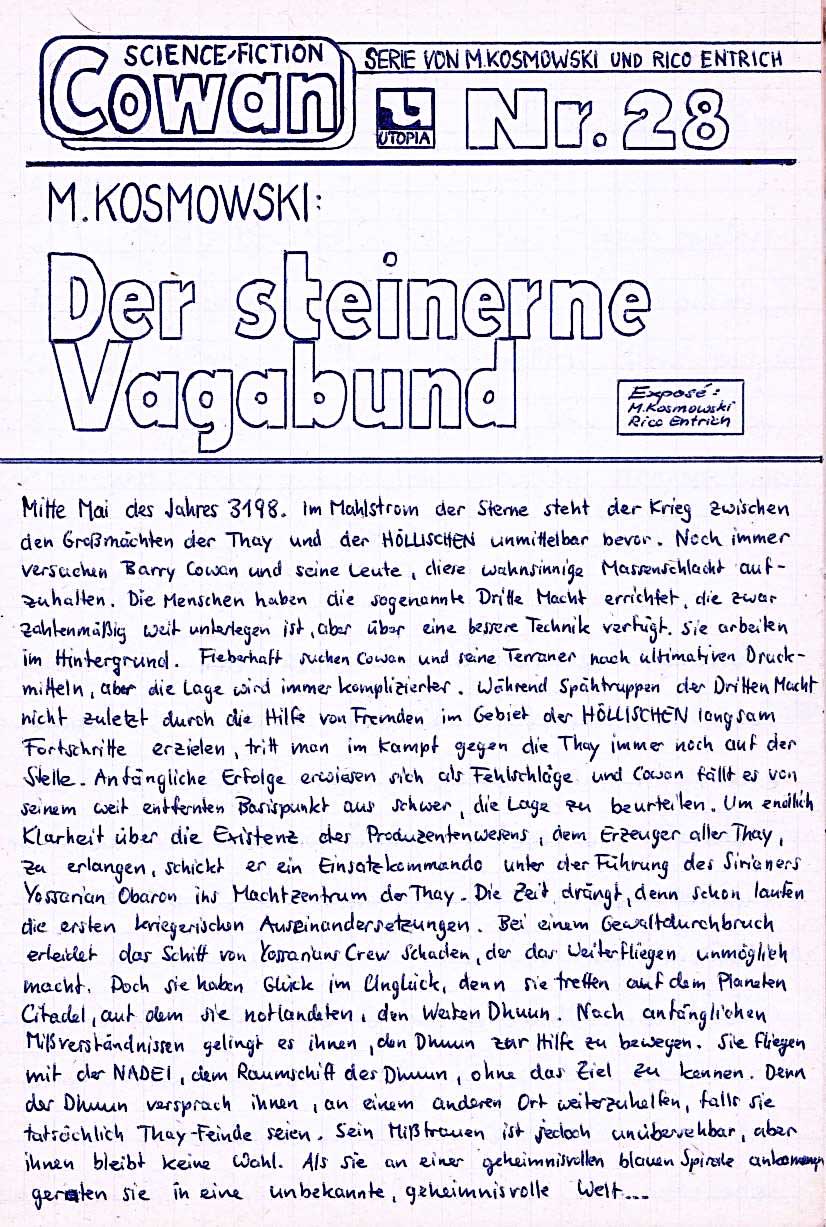 SCIENCE-FICTION
Cowan
SERIE VON M.KOSMOWSKI UND RICO ENTRICH
UTOPIA
Nr. 28
M. KOSMOWSKI:
Der steinerne
Vagabund
Exposé:
M.Kosmowski
Rico Entrich
Mitte Mai des Jahres 3198. Im Mahlstrom der Sterne steht der Krieg zwischen
den Großmächten der Thay und der HÖLLISCHEN unmittelbar bevor. Noch immer
versuchen Barry Cowan und seine Leute, diese wahnsinnige Massenschlacht auf-
zuhalten. Die Menschen haben die sogenannte Dritte Macht errichtet, die zwar
zahlenmäßig weit unterlegen ist, aber über eine bessere Technik verfügt. Sie arbeiten
im Hintergrund. Fieberhaft suchen Cowan und seine Terraner nach ultimativen Druck-
mitteln, aber die Lage wird immer komplizierter. Während Spähtruppen der Dritten Macht
nicht zuletzt durch die Hilfe von Fremden im Gebiet der HÖLLISCHEN langsam
Fortschritte erzielen, tritt man im Kampf gegen die Thay immer noch auf der
Stelle. Anfängliche Erfolge erwiesen sich als Fehlschläge und Cowan fällt es von
seinem weit entfernten Basispunkt aus schwer, die Lage zu beurteilen. Um endlich
Klarheit über die Existenz des Produzentenwesens, dem Erzeuger aller Thay,
zu erlangen, schickt er ein Einsatzkommando unter der Führung des Sirianers
Yossarian Obaron ins Machtzentrum der Thay. Die Zeit drängt, denn schon laufen
die ersten kriegerischen Auseinandersetzungen. Bei einem Gewaltdurchbruch
erleidet das Schiff von Yossarians Crew Schaden, der das Weiterfliegen unmöglich
macht. Doch sie haben Glück im Unglück, denn sie treffen auf dem Planeten
Citadel, auf dem sie notlandeten, den Weisen Dhuun. Nach anfänglichen
Mißverständnissen gelingt es ihnen, den Dhuun zur Hilfe zu bewegen. Sie fliegen
mit der NADEL, dem Raumschiff des Dhuun, ohne das Ziel zu kennen. Denn
der Dhuun versprach ihnen, an einem anderen Ort weiterzuhelfen, falls sie
tatsächlich Thay-Feinde seien. Sein Mißtrauen ist jedoch unübersehbar, aber
ihnen bleibt keine Wahl. Als sie an einer geheimnisvollen blauen Spirale ankommen
geraten sie in eine unbekannte, geheimnisvolle Welt...